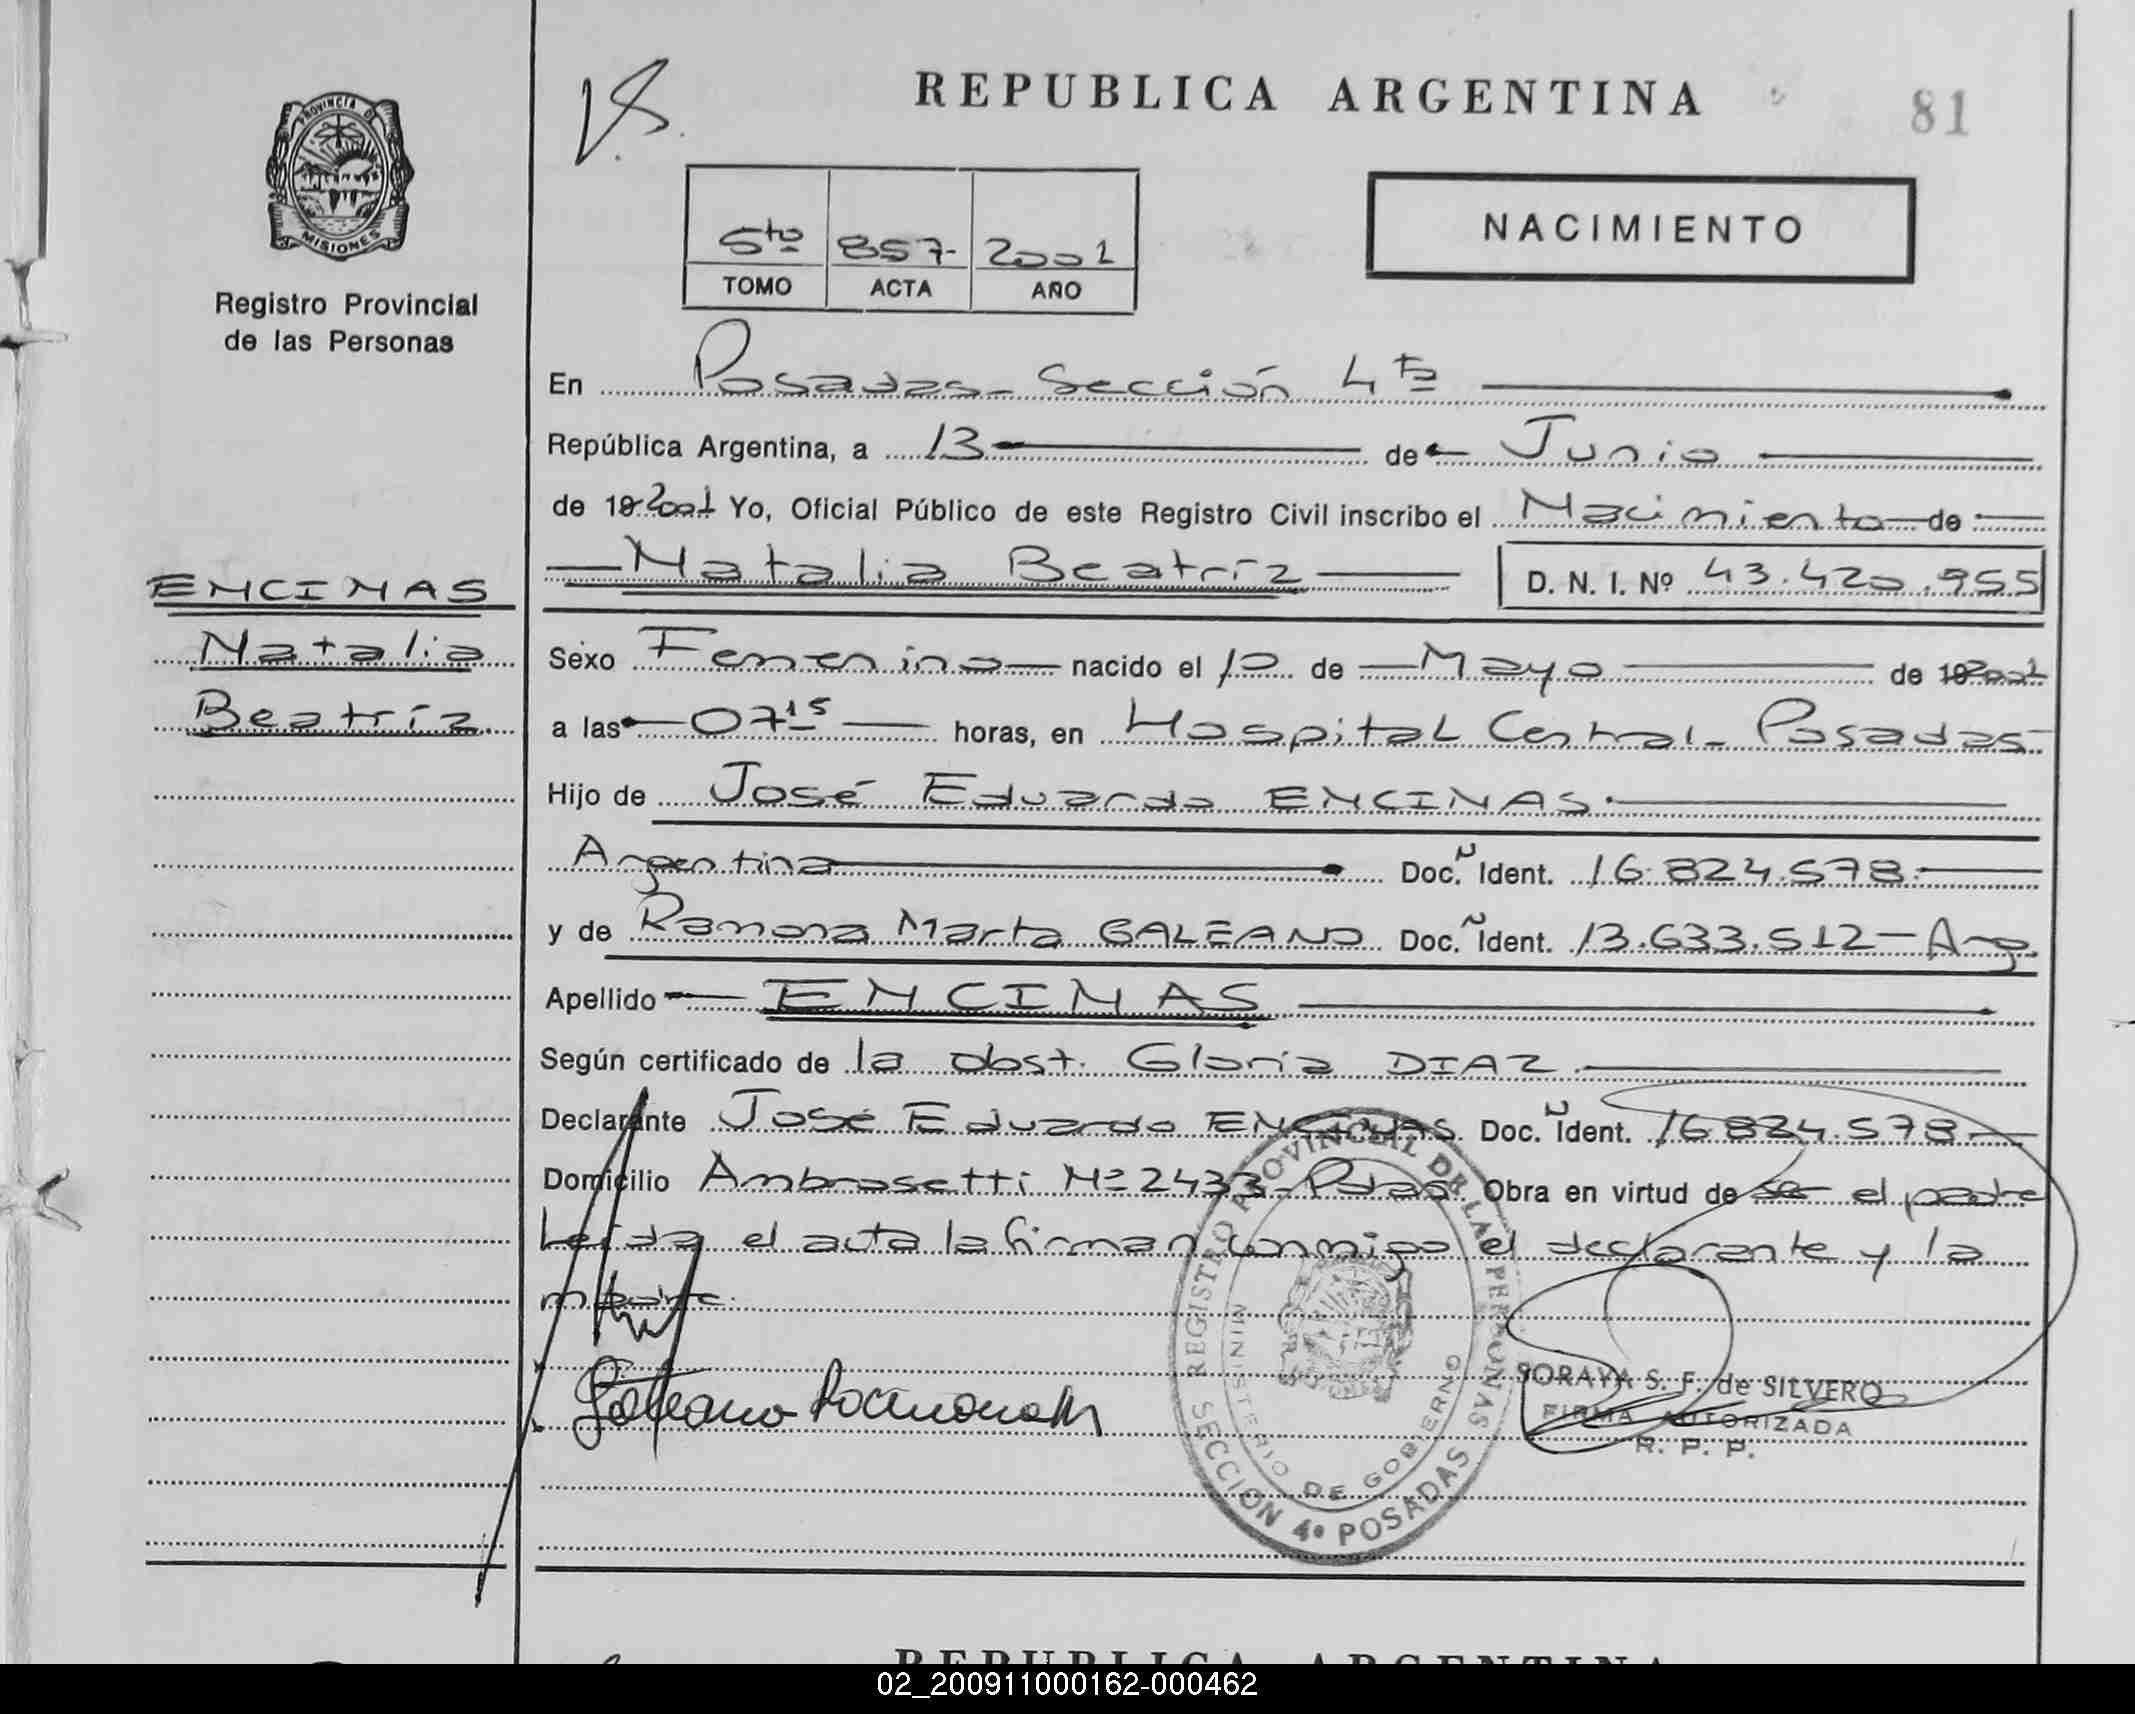 REPUBLICA ARGENTINA
81
PROVINCIA DE MISIONES
Registro Provincial
de las Personas
5to 857- 2001
TOMO ACTA AÑO
NACIMIENTO
En Posadas- Sección 4ta
República Argentina, a 13 de Junio
de 19 2001 Yo, Oficial Público de este Registro Civil inscribo el Nacimiento de
Natalia Beatríz D. N. I. Nº 43.420.955
ENCINAS
Natalia
Beatríz.
Sexo Femenino nacido el 10 de Mayo de 19 2001
a las 07 15 horas, en Hospital Central- Posadas-
Hijo de José Eduardo ENCINAS.
Argentina Doc. Ident. 16.824.578.
y de Ramona Marta GALEANO Doc. Ident. 13.633.512- Arg
Apellido ENCINAS
Según certificado de la obst. Gloria DIAZ.
Declarante José Eduardo ENCINAS Doc. Ident. 16.824.578
Domicilio Ambrosetti Nº 2433- Pdas. Obra en virtud de ser el padre
Leída el acta la firman conmigo el declarante y la
madre.
Galeano Ramona M
REGISTRO PROVINCIAL DE LAS PERSONAS
MINISTERIO DE GOBIERNO
SECCION 4º POSADAS
SORAYA S. F. de SILVERO
FIRMA AUTORIZADA
R. P. P.
REPUBLICA ARGENTINA
02_200911000162-000462